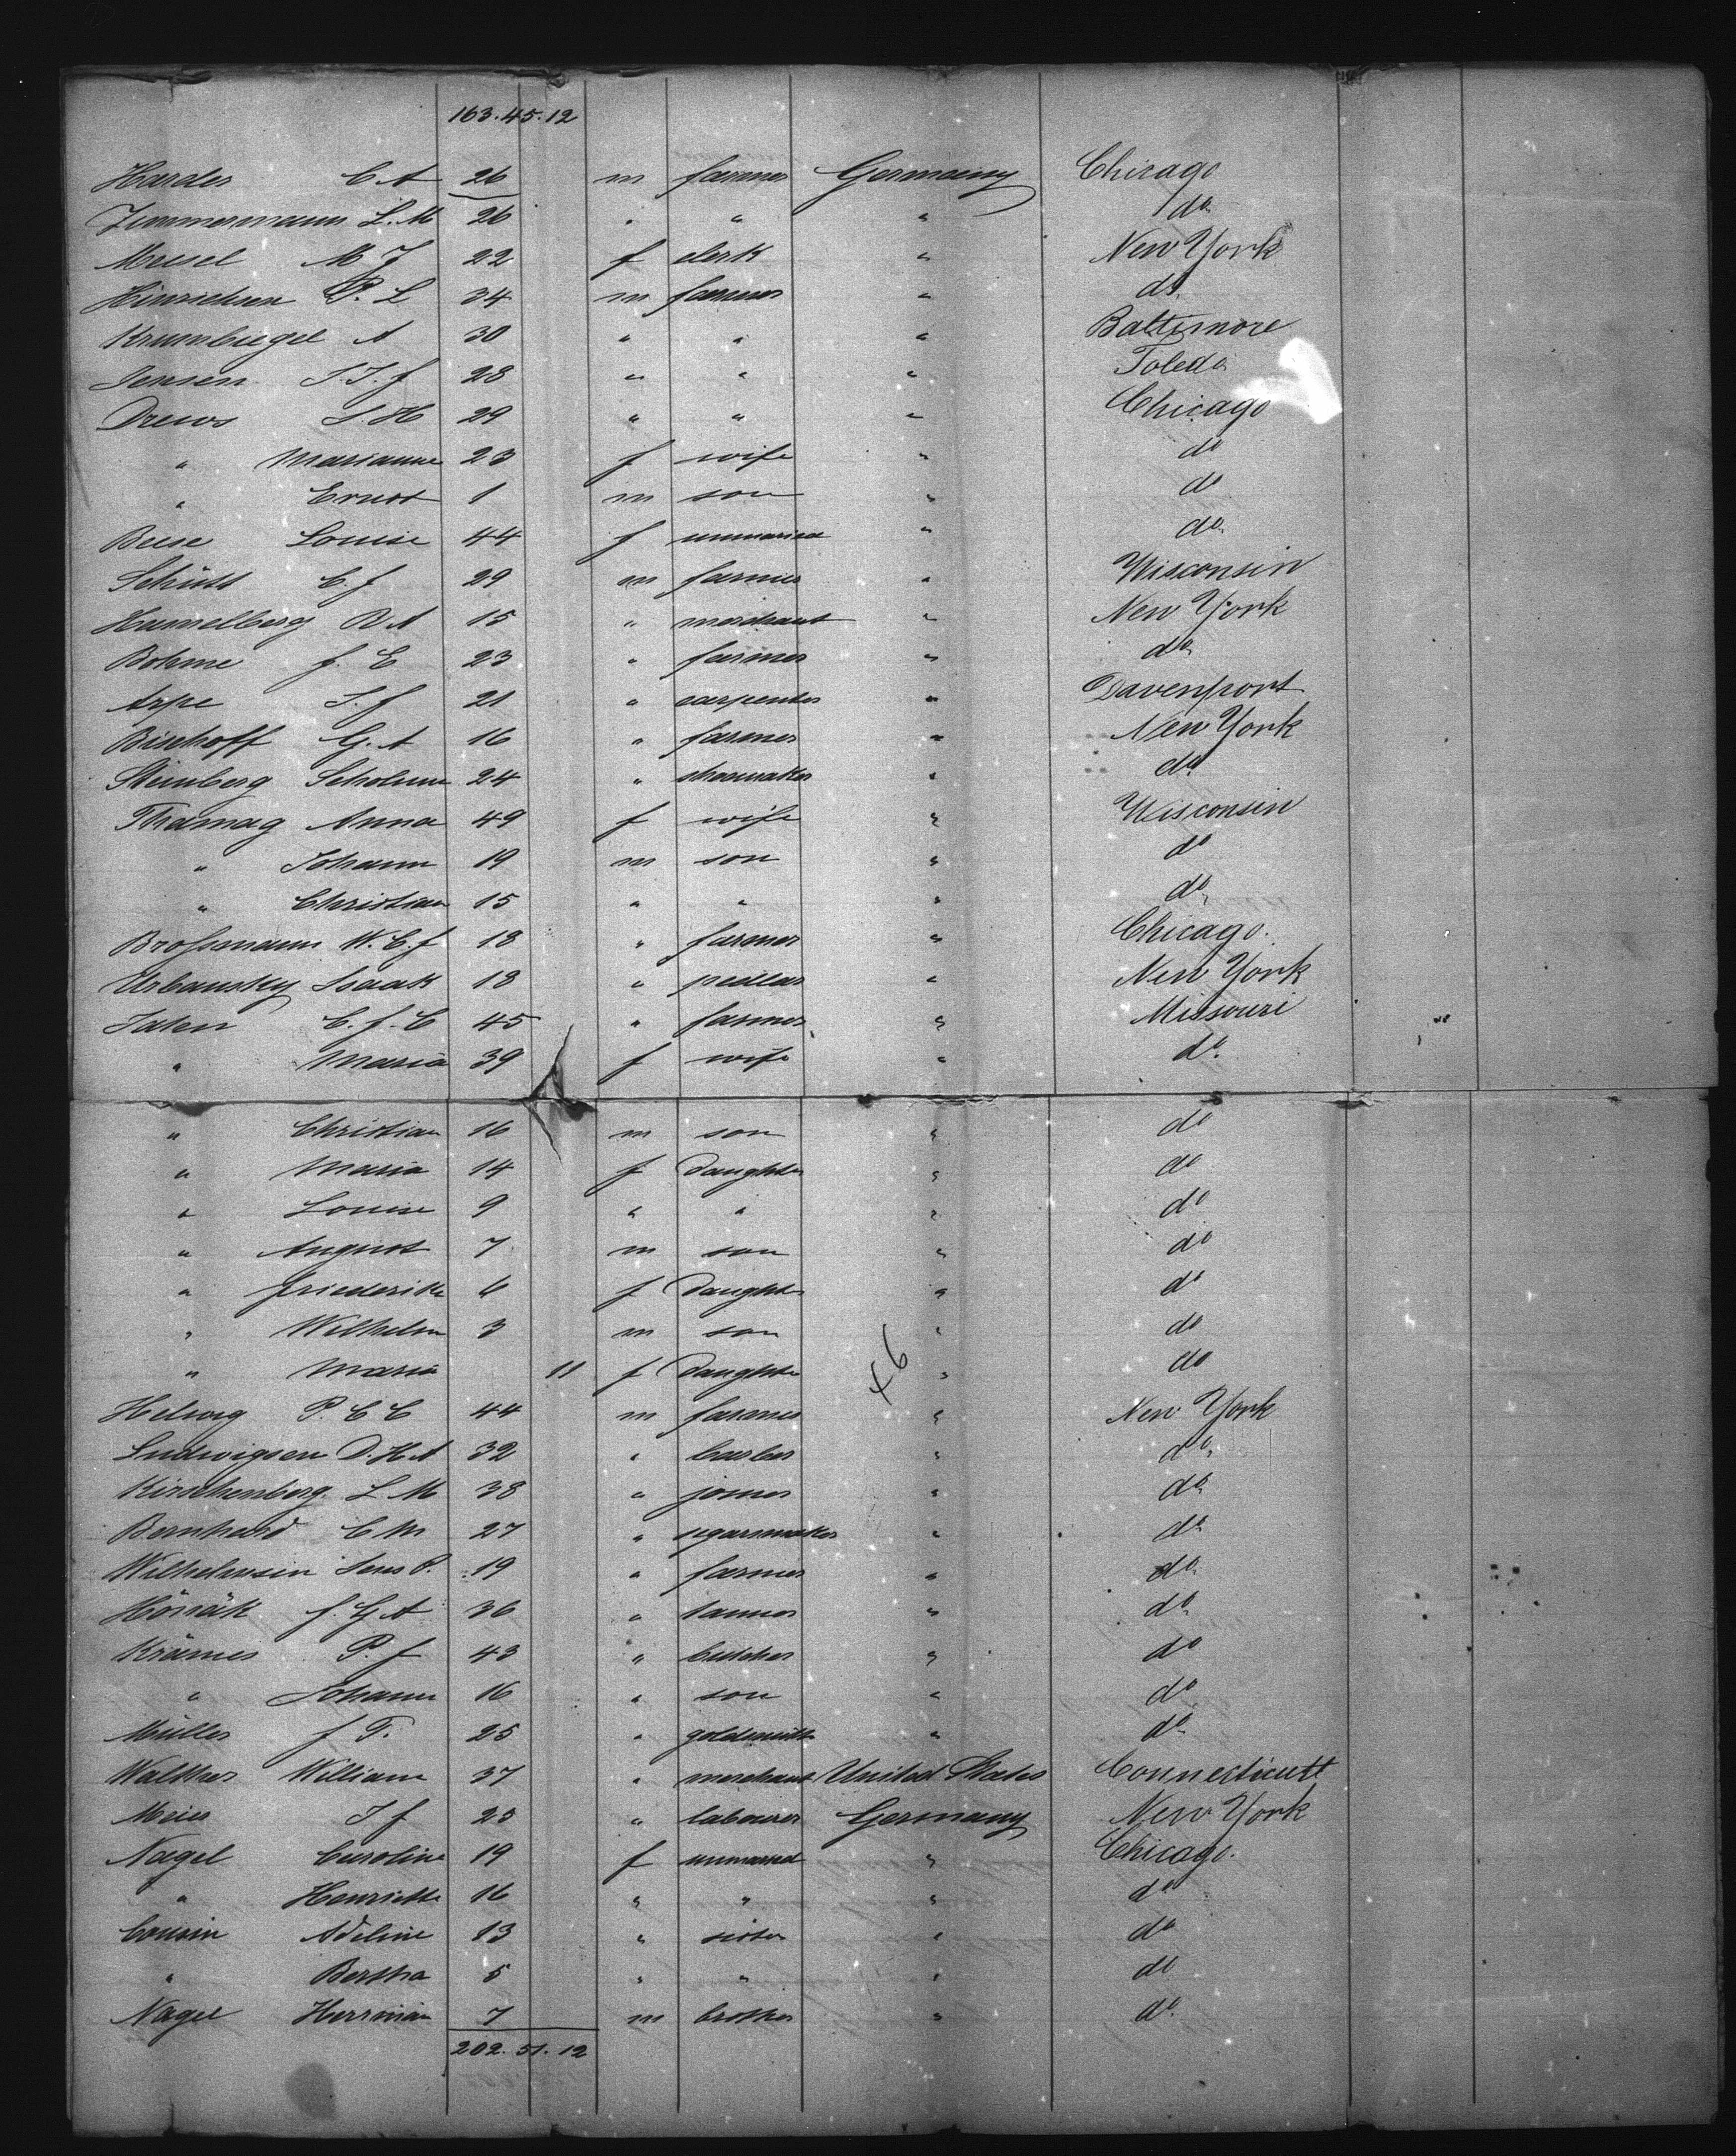 163. 45. 12
Harder C A 26 m farmer Germany Chicago
Zimmermann L. M 26 " " " do
Meusel M J 22 f clerk " New York
Hinrichsen P. L 34 m farmer " do
Krumbiegel A 30 " " " Baltimore
Jensen J. J. f 28 " " " Toledo
Drews J. H 29 " " " Chicago
" Marianne 23 f wife " do
" Ernst 1 m son " do
Beese Louise 44 f unmaried " do
Schütt C. f 29 m farmer " Wisconsin
Hasselberg R A 15 " merchant " New York
Bohme f. E 23 " farmer " do
Arpe J. f 21 " carpenter " Davenport
Bischoff G. A 16 " farmer " New York
Steinberg 24 " shoemaker " do
Anna 49 f wife " Wisconsin
" Johann 19 m son " do
" Christian 15 " " " do
Broſsmann W. C. f 18 " farmer " Chicago.
Urbansky Isaak 18 " pedlar " New York
C. f. C 45 " farmer " Missouri
" Maria 39 f wife " do
" Christian 16 m son " do
" Maria 14 f daughter " do
" Louise 9 " " " do
" August 7 m son " do
" Friederike 6 f daughter " do
" Wilhelm 3 m son " do
" Maria 11 f daughter " do
46
Helwig P. C C 44 m farmer " New York
Ludwigsen D. H A 32 " barber " do
Kirschenberg. L. M 38 " joiner " do
Bernhard C M 27 " segarsmaker " do
Wilhelmsen Jens P. 19 " farmer " do
f. G A 36 " tanner " do
Krämer P. f 43 " butcher " do
" Johann 16 " son " do
Müller f T. 25 " goldsmith " do
Walther William 37 " merchant United States Connecticutt
Meier J f 25 " labourer Germany New York
Nagel Caroline 19 f unmarried " Chicago.
" Henriette 16 " " " do
Cousin Adeline 13 " sister " do
" Bertha 5 " " " do
Nagel Herrman 7 m brother " do
202. 51. 12